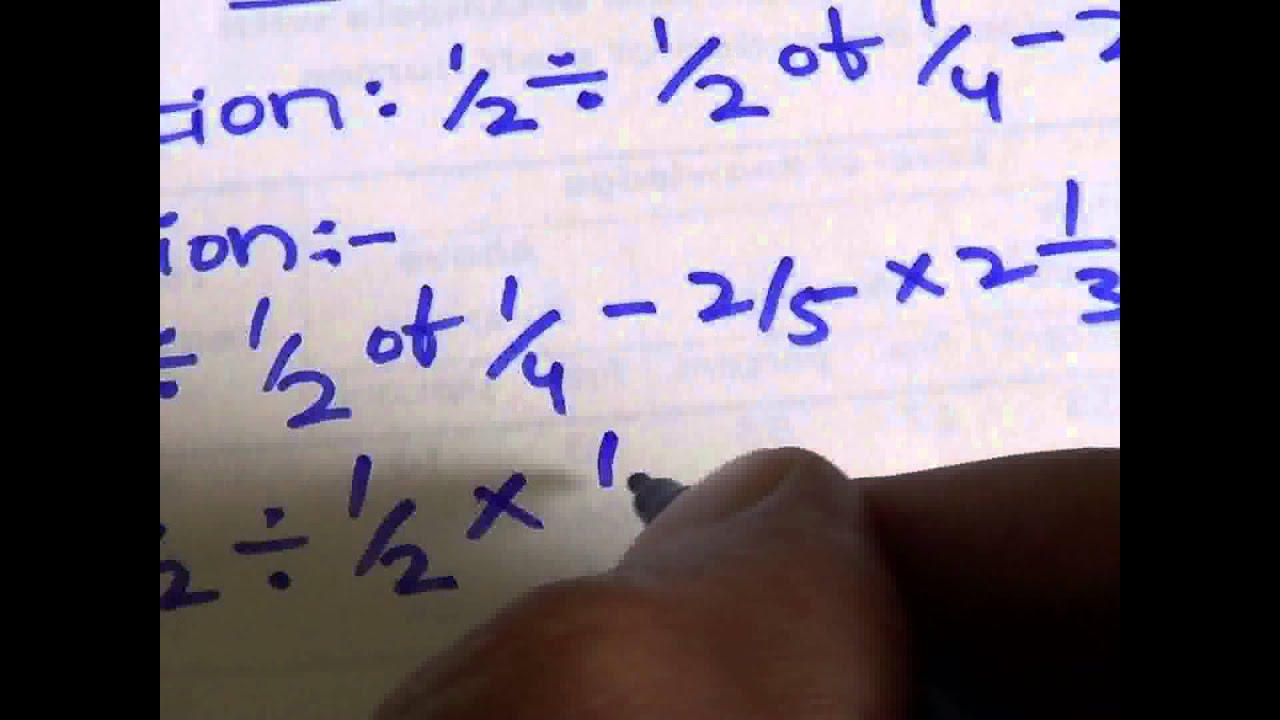 ion: 1/2 ÷ 1/2 of 1/4 -
ion:-
÷ 1/2 of 1/4 - 2/5 × 2 1/3
2 ÷ 1/2 × 1